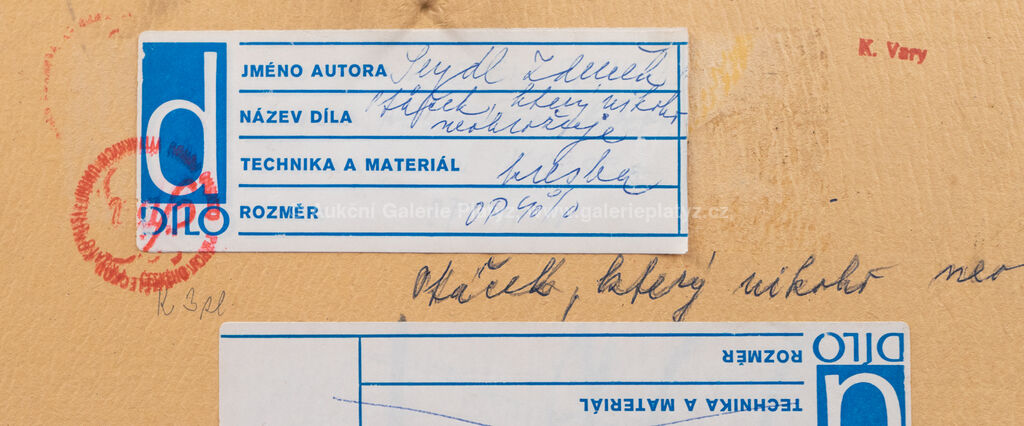 K. Vary
d
DÍLO
JMÉNO AUTORA Seydl Zdeněk
NÁZEV DÍLA Ptáček, který nikoho
neohrožuje
TECHNIKA A MATERIÁL kresba
ROZMĚR OP 40%
Aukční Galerie Platýz, www.galerieplatyz.cz
Ptáček, který nikoho neo
K 3 pl.
DÍLO
ROZMĚR
TECHNIKA A MATERIÁL